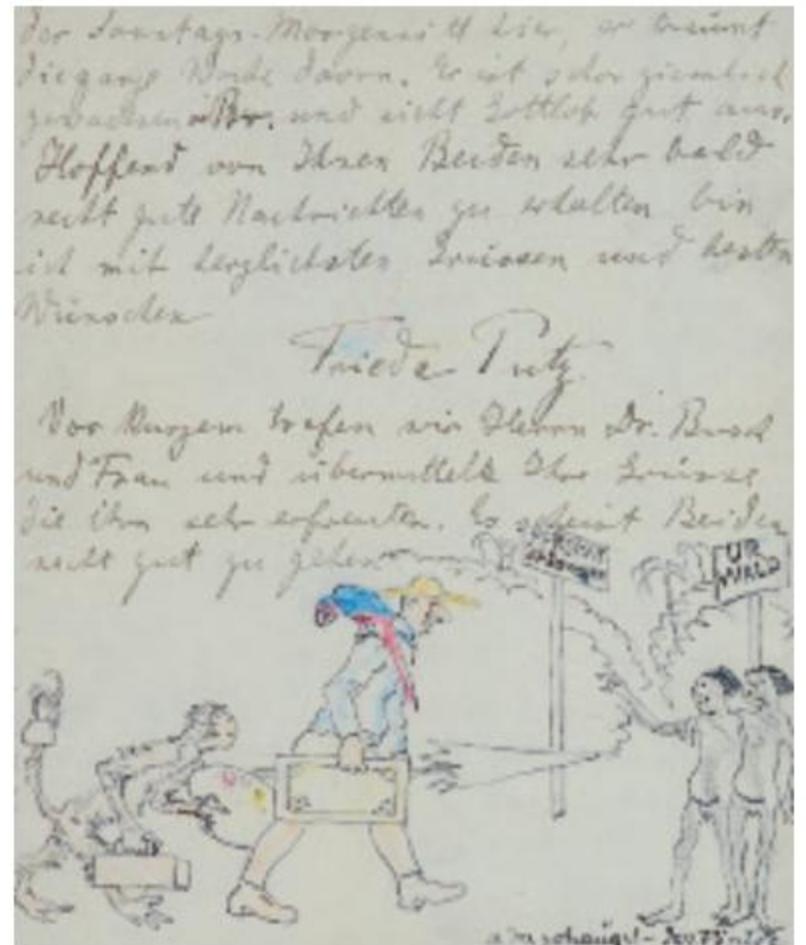 der Sonntags-Morgenritt hier, er träumt
die ganze Woche davon. Er ist schon ziemlich
gewachsen Br. und sieht Gottlob gut aus.
Hoffend von Ihnen Beiden sehr bald
recht gute Nachrichten zu erhalten bin
ich mit herzlichsten Grüssen und besten
Wünschen
Frieda Putz
Vor Kurzem trafen wir Herrn Dr.
und Frau und übermittelte Ihre Grüsse
die ihn sehr erfreuten. Es scheint Beiden
recht gut zu gehen
UR
WALD